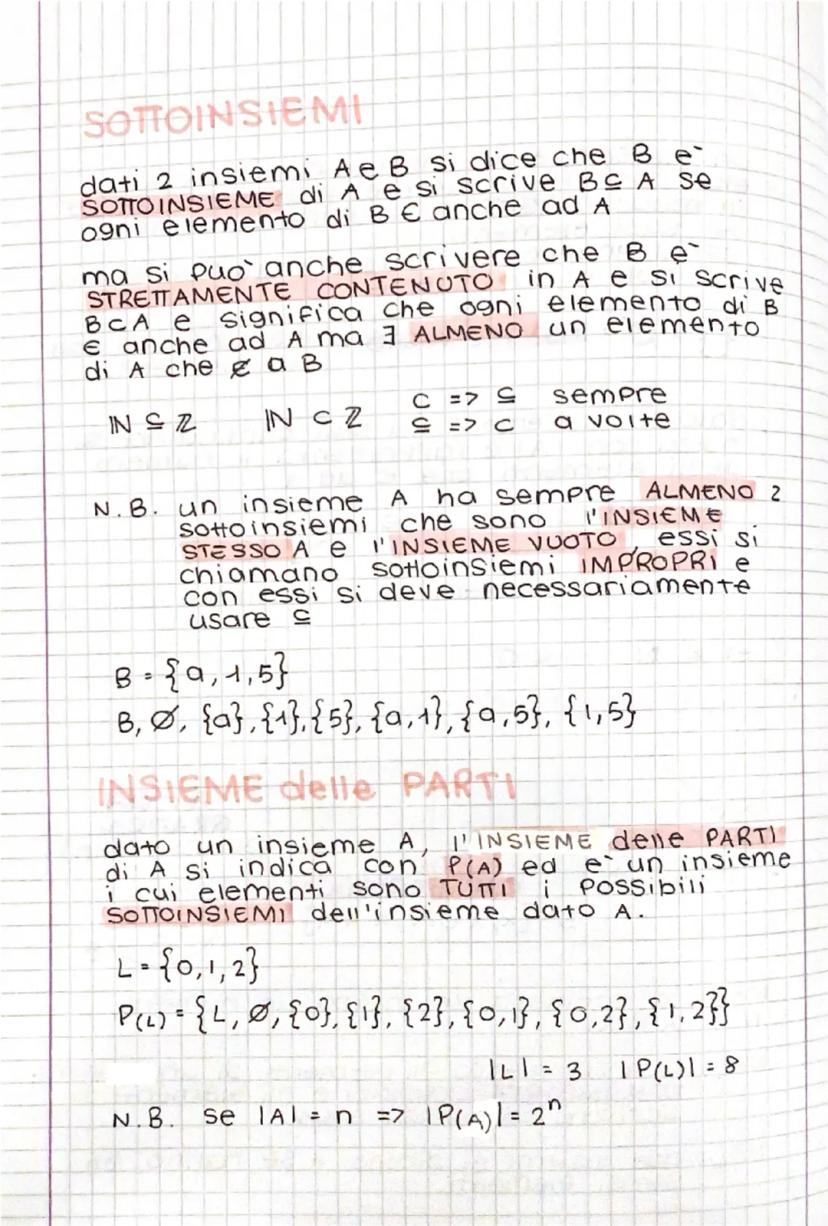 SOTTOINSIEMI
dati 2 insiemi A e B si dice che B e`
SOTTOINSIEME di A e si scrive B ⊆ A se
ogni elemento di B ∈ anche ad A
ma si puo` anche scrivere che B e`
STRETTAMENTE CONTENUTO in A e si scrive
B ⊂ A e significa che ogni elemento di B
∈ anche ad A ma ∃ ALMENO un elemento
di A che ∉ a B
ℕ ⊆ ℤ ℕ ⊂ ℤ ⊂ => ⊆ sempre
⊆ => ⊂ a volte
N.B. un insieme A ha sempre ALMENO 2
sottoinsiemi che sono l'INSIEME
STESSO A e l'INSIEME VUOTO, essi si
chiamano sottoinsiemi IMPROPRI e
con essi si deve necessariamente
usare ⊆
B = {a, 1, 5}
B, Ø, {a}, {1}, {5}, {a, 1}, {a, 5}, {1, 5}
INSIEME delle PARTI
dato un insieme A, l'INSIEME delle PARTI
di A si indica con P(A) ed e` un insieme
i cui elementi sono TUTTI i possibili
SOTTOINSIEMI dell'insieme dato A.
L = {0, 1, 2}
P(L) = {L, Ø, {0}, {1}, {2}, {0, 1}, {0, 2}, {1, 2}}
|L| = 3 |P(L)| = 8
N.B. se |A| = n => |P(A)| = 2ⁿ